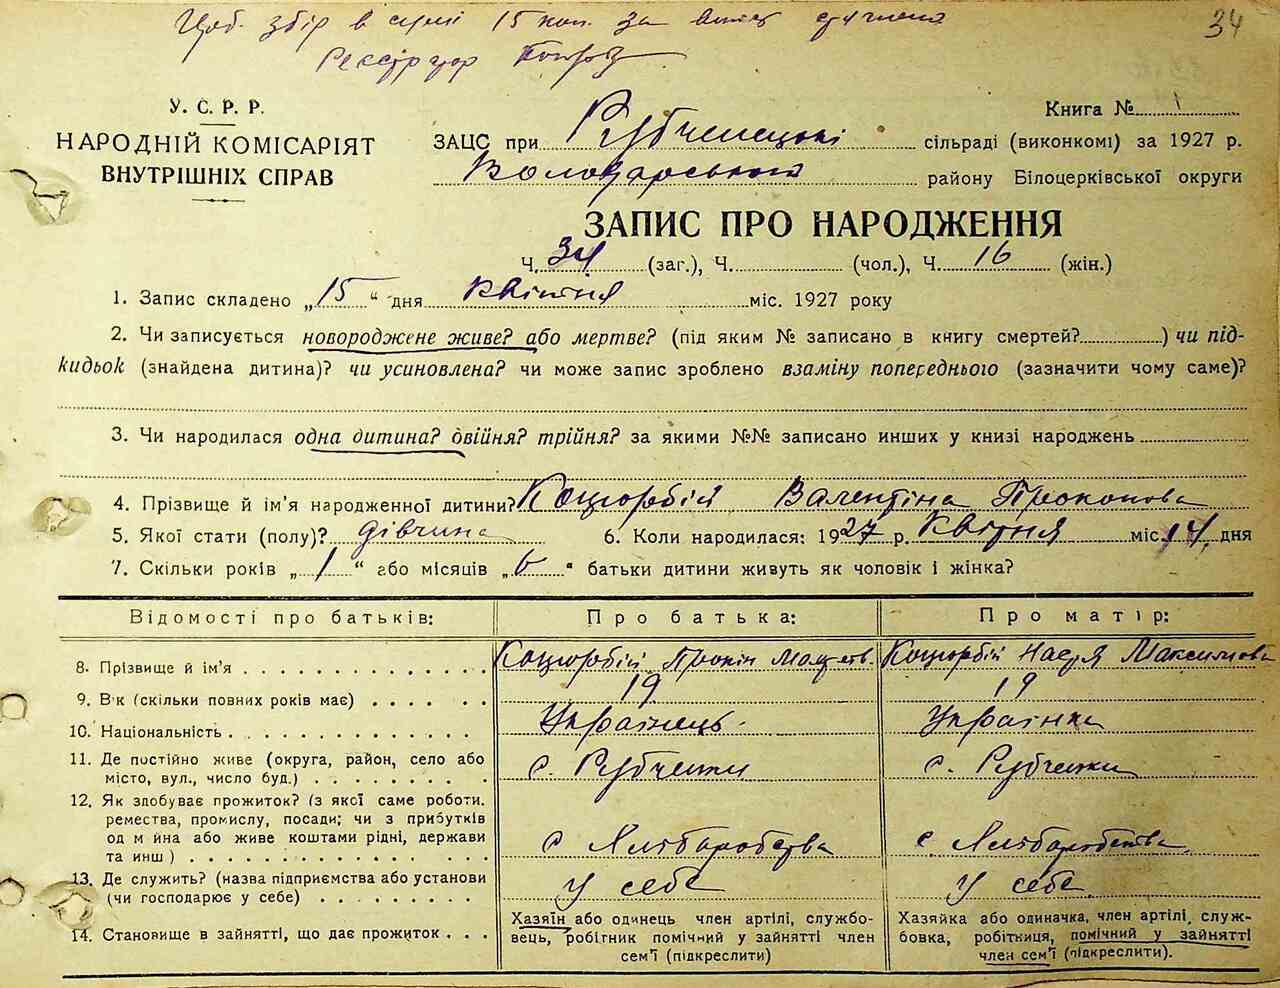 Цоб. збір в сумі 15 коп. за
34
У. С. Р. Р.
НАРОДНІЙ КОМІСАРІЯТ
ВНУТРІШНІХ СПРАВ
Книга № 1
ЗАЦС при Рубченецькі сільраді (виконкомі) за 1927 р.
Володарського району Білоцерківської округи
ЗАПИС ПРО НАРОДЖЕННЯ
Ч. 34 (заг.), Ч. (чол.), Ч. 16 (жін.)
1. Запис складено „15“ дня квітня міс. 1927 року
2. Чи записується новороджене живе? або мертве? (під яким № записано в книгу смертей? ) чи під-
кидьок (знайдена дитина)? чи усиновлена? чи може запис зроблено взаміну попереднього (зазначити чому саме)?
3. Чи народилася одна дитина? двійня? трійня? за якими №№ записано инших у книзі народжень
4. Прізвище й ім'я народженної дитини? Коцюрбій Валентіна Прокопова
5. Якої стати (полу)? дівчина 6. Коли народилася: 1927 р. квітня міс. 14 дня
7. Скільки років „1“ або місяців „6“ батьки дитини живуть як чоловік і жінка?
Відомості про батьків: Про батька: Про матір:
8. Прізвище й ім'я Коцюрбій Прокіп Коцюрбій Настя Максимова
9. Вік (скільки повних років має) 19 19
10. Національність Українець Українка
11. Де постійно живе (округа, район, село або
місто, вул., число буд.) с. Рубченки с. Рубченки
12. Як здобуває прожиток? (з якої саме роботи.
ремества, промислу, посади; чи з прибутків
од м йна або живе коштами рідні, держави
та инш) с Хліборобства с Хліборобства
13. Де служить? (назва підприємства або установи
(чи господарює у себе) У себе У себе
14. Становище в зайнятті, що дає прожиток
Хазяїн або одинець член артілі, службо-
вець, робітник помічний у зайнятті член
сем'ї (підкреслити)
Хазяйка або одиначка, член артілі, служ-
бовка, робітниця, помічний у зайнятті
член сем'ї (підкреслити).